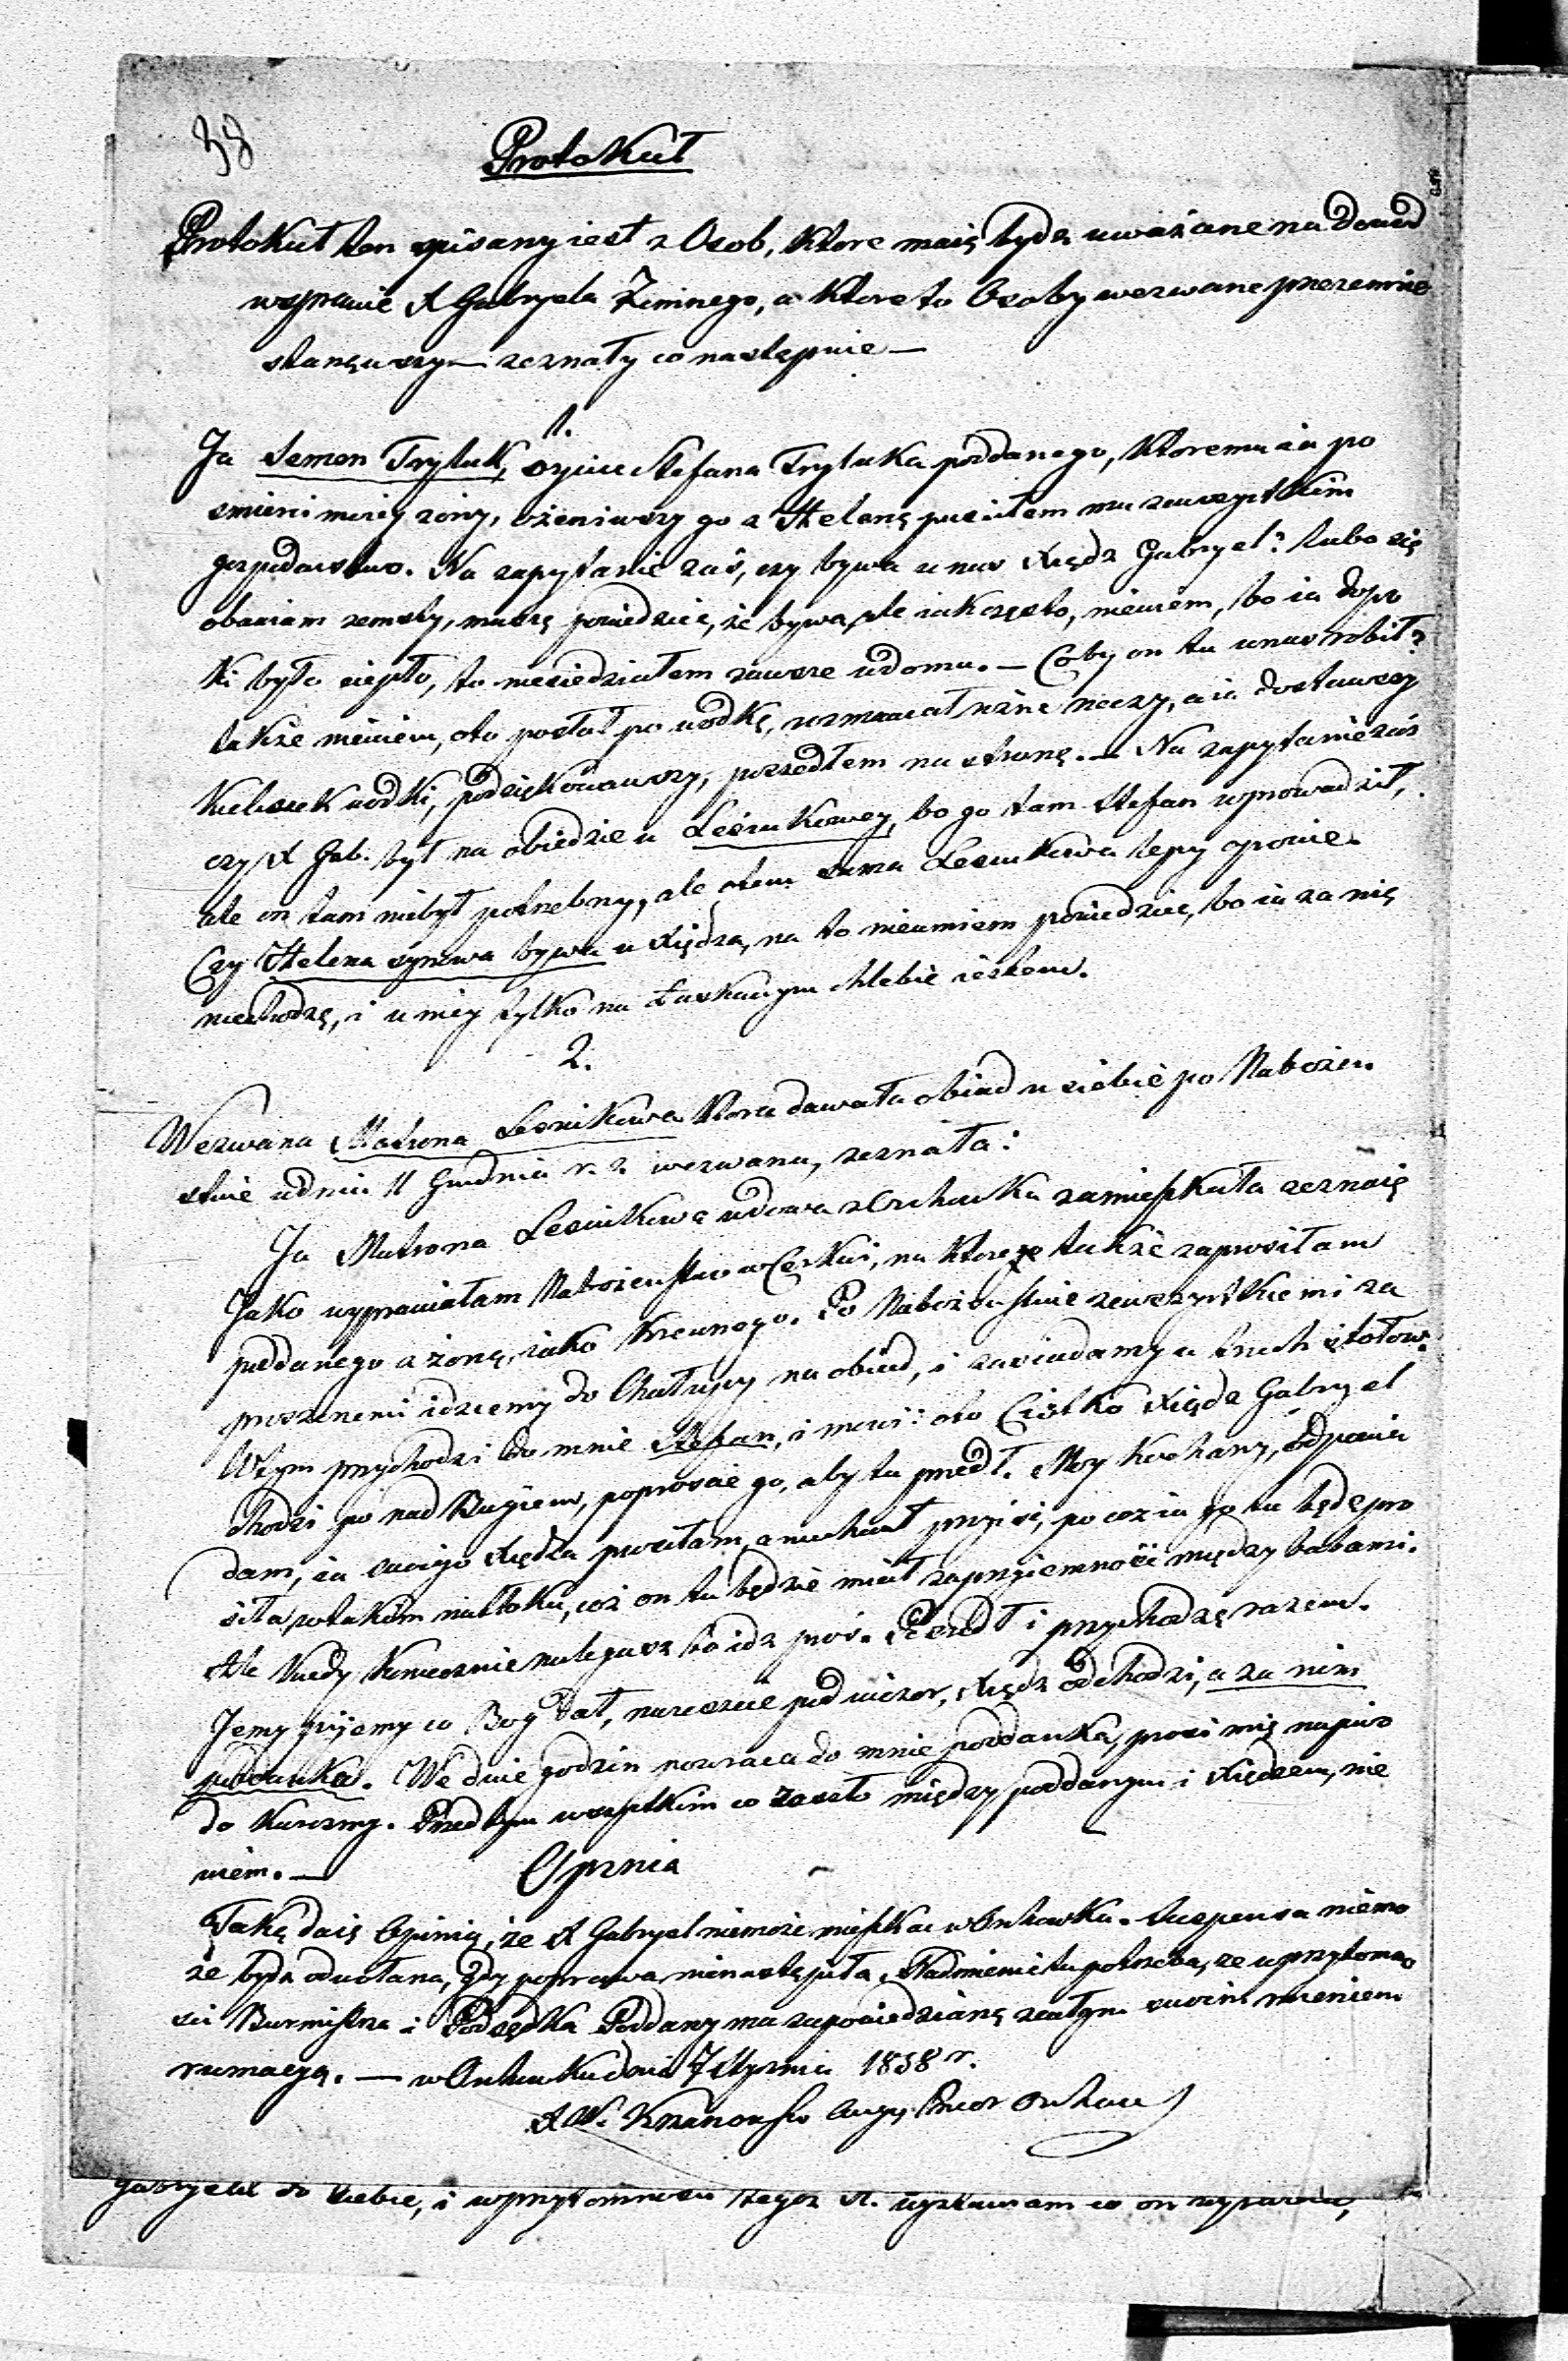 38
Protokuł
Protokuł ten spisany iest z Osob, ktore maią bydź uważane na dowod
wsprawie X Gabryela Zimnego, a ktore to Osoby wezwane przezemnie
stanąwszy — zeznały co następuie —
1.
Ja Semen Tryluk, oyciec Stefana Tryluka poddanego, ktoremu ia po
smierci moiey żony, ożeniwszy go z Heleną puściłem mu zewszystkim
gospodarstwo. Na zapytanie zaś, czy bywa unas Xiądz Gabryel? lubo się
obawiam zemsty, muszę powiedzieć, że bywa, ale iak często, niewiem, bo ia dopo
ki było ciepło, to niesiedziałem zawsze udomu. — Coby on tu unas robił?
także niewiem, oto posłał po wodkę, rozmawiał rożne rzeczy, a ia dostawszy
kieliszek wodki, podziękowawszy, poszedłem na stronę. — Na zapytanie zaś
czy X Gab. był na obiedzie u Lesiukowey, bo go tam Stefan wprowadził,
ale on tam niebył potrzebny, ale otem sama Lesiukowa lepiy opowie.
Czy Helena synowa bywa u Xiędza, na to nieumiem powiedzieć, bo ia za nią
niechodzę, i u niey tylko na łaskawym chlebie iestem.
2.
Wezwana Matrona Lesiukowa ktora dawała obiad u siebie po Nabożeń
stwie wdniu 11 Grudnia r. z. wezwana, zeznała:
Ja Matrona Lesiukowa wdowa z Orchowka zamieszkała zeznaię
Jako wyprawiałam Nabożeństwo w Cerkwi, na ktore także zaprosiłam
poddanego z żoną, iako krewnego. Po Nabożeństwie zewszystkiemi za
proszonemi idziemy do Chałupy na obiad, i zasiadamy u trzech stołow.
Wtym przychodzi do mnie Stefan, i mowi: oto Ciotko Xiądz Gabryel
chodzi po nad Bugiem, poproscie go, aby tu przedł. Moy kochany, odpowia
dam, ia swoigo Xiędza prosiłam, a niechciał przyiść, po coz ia go tu będę pro
siła wtakim natłoku, coż on tu będzie miał zaprzyiemność między babami.
Ale kiedy koniecznie nalegasz to idz proś. Poszedł i przychodzą razem.
Jemy piiemy co Bog dał, nareszcie pod wieczor, Xiądz odchodzi, a za nim
poddanka. We dwie godzin powraca do mnie poddanka, prosi mię napiwo
do karczmy. Przed tym wszystkim co zaszło między poddanym i Xiędzem, nie
wiem. —
Opinia
Taką daię Opinią, że X Gabryel niemoże mieszkać w Orchowku. Suspensa niemo
że bydź odwołana, gdy poprawa nienastąpiła. Nadmienić tu potrzeba, ze wprzytomno
ści Burmistrza i Podsędka Poddany ma zapowiedzianą zcałym swoim mieniem
rumacyą. — w Orchowku dnia 7 Stycznia 1838 r.
X W. Krzanowski Augus. Przeor Orchow
Gabryela do siebie, i wprzytomności tegoż X. on wyprawia,